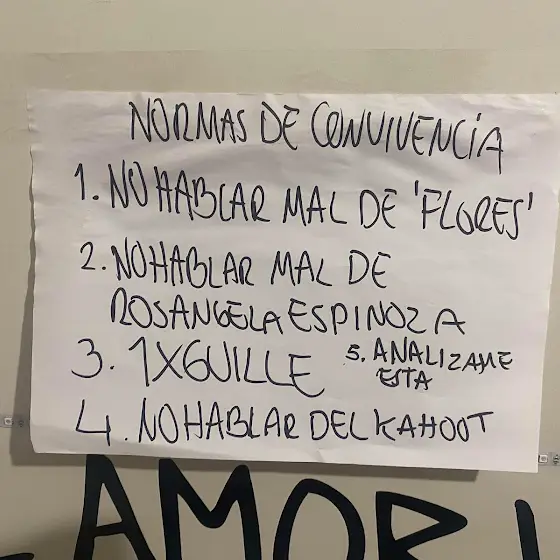 NORMAS DE CONVIVENCÍA
1. NO HABLAR MAL DE 'FLORES'
2. NO HABLAR MAL DE
ROSANGELA ESPINOZA
3. 1XGUILLE
4. NO HABLAR DEL KAHOOT
5. ANALIZAME
ESTA
AMOR!